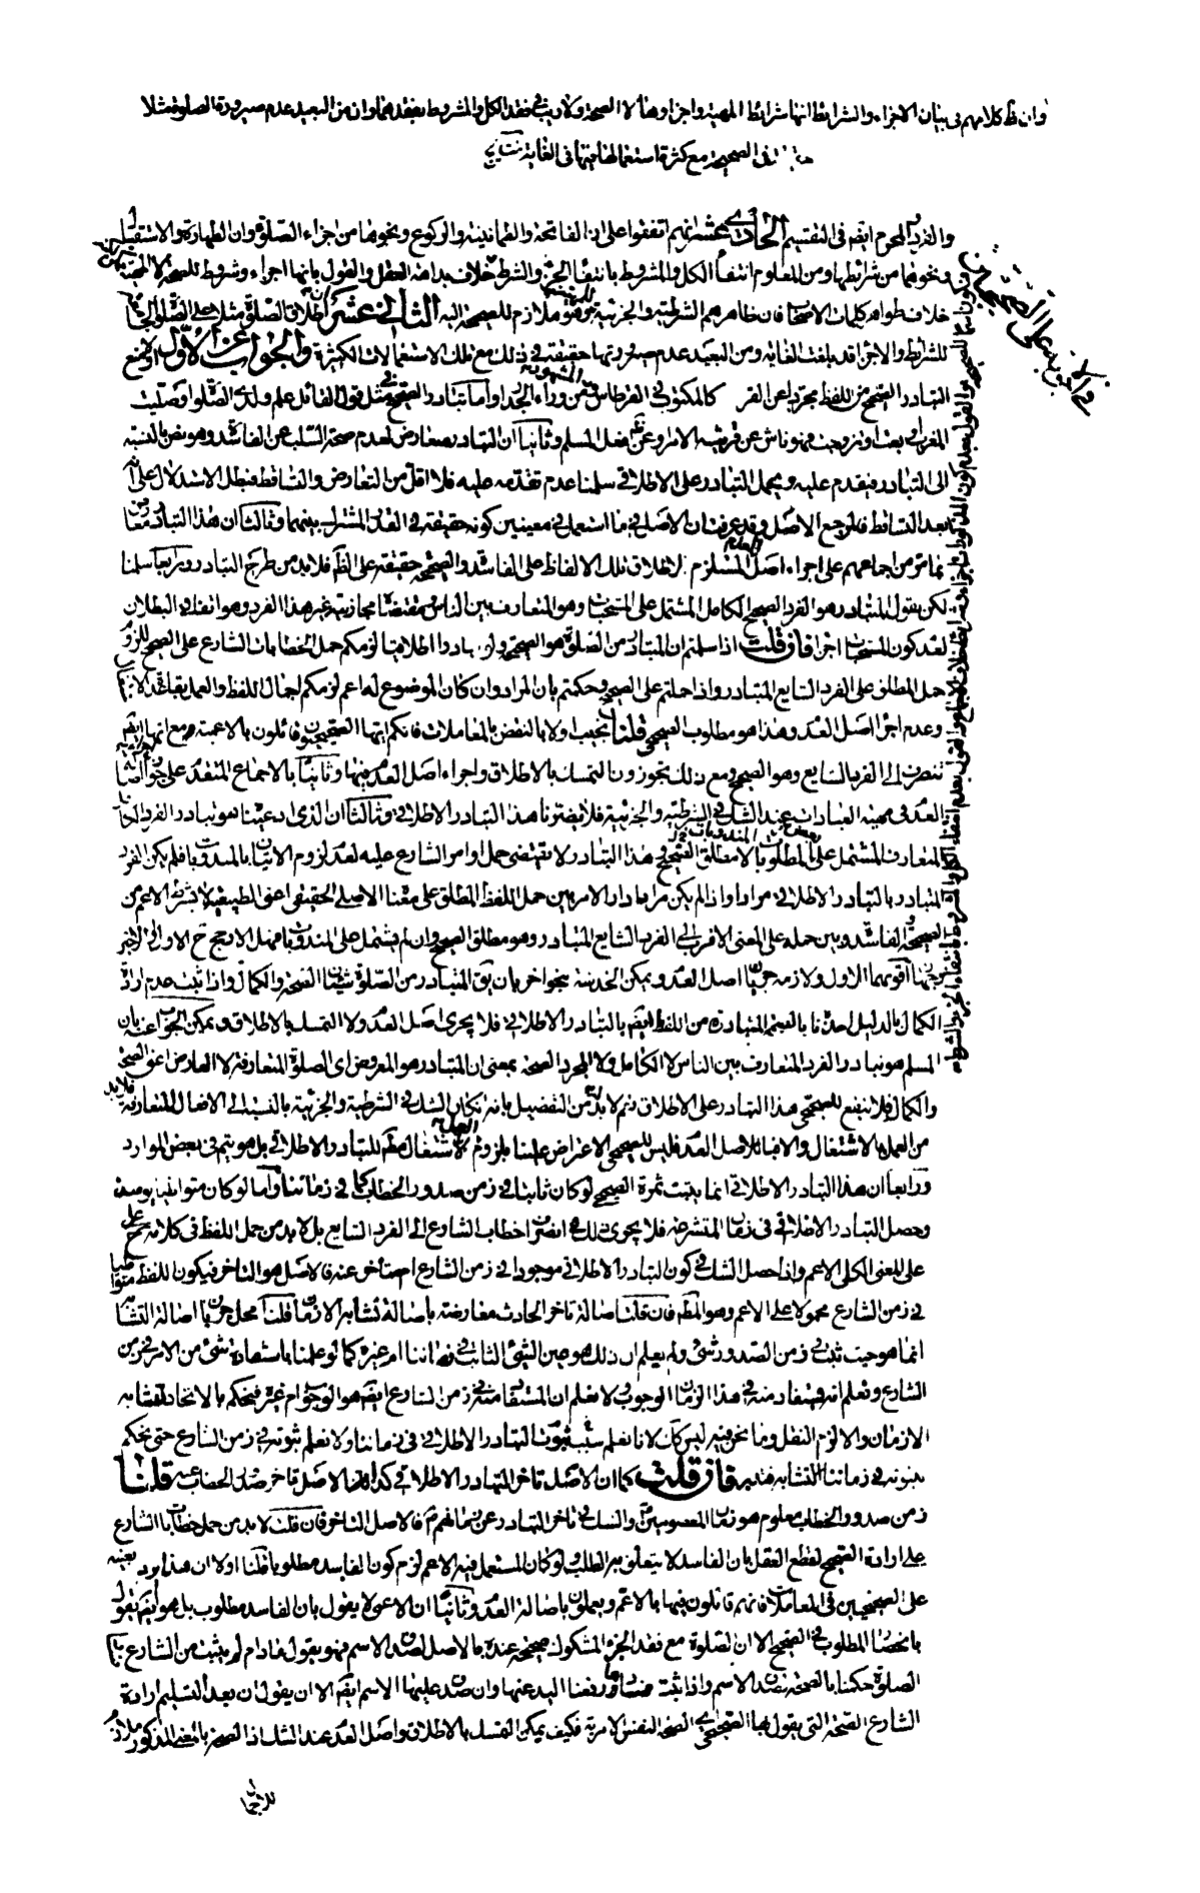 وان ظ كلامهم فى بيان الاجزاء والشرائط انها شرائط المهية واجزاؤها لا الصحة ولا ريب فى فقد الكل والمشروط بفقدهما وان من البعيد عدم صيرورة الصلوة مثلا
فى الصحيحة مع كثرة استعمالها فيها فى الغاية
والفرد المحرم ايضا فى التقسيم الحادى عشر انهم اتفقوا على ان الفاتحة والطمانينة والركوع ونحوها من اجزاء الصلوة وان الطهارة والاستقبال
ونحوهما من شرائطها ومن المعلوم انتفاء الكل والمشروط بانتفاء الجزء والشرط خلاف بداهة العقل والقول بانها اجزاء وشروط للصحة لا المهية
خلاف ظواهر كلمات الاصحاب فان ظاهرهم الشرطية والجزئية وهو ملازم للصحة الثانى عشر اطلاق الصلوة مثلا على الصلوة الجامعة
للشرائط والاجزاء قد بلغت الغاية ومن البعيد عدم صيرورتها حقيقة فى ذلك مع تلك الاستعمالات الكثيرة والجواب عن الاول اولا بمنع
التبادر الصحيح من اللفظ مجردا عن القر كالمكتوب فى القرطاس من وراء الجدار واما تبادر الصحيح فى مثل قول القائل علم ولدى الصلوة او صليت
المغرب او بعت او تزوجت فهو ناش عن قرينة الامر او عن فعل المسلم وثانيا ان التبادر معارض لعدم صحة السلب عن الفاسد وهو نص بالنسبة
الى التبادر فيقدم عليه ويحمل التبادر على الاطلاقى سلمنا عدم تقدمه عليه فلا اقل من التعارض والتساقط فيبطل الاستدلال على
بعد التساقط فالمرجع الاصل وقد عرفت ان الاصل فى ما استعمل فى معنيين كونه حقيقة فى القدر المشترك بينهما وثالثا ان هذا التبادر معارض
بما مر من اجماعهم على اجراء اصل العدم المستلزم لاطلاق تلك الالفاظ على الفاسد والصحيح حقيقة على الظ فلا بد من طرح التبادر ورابعا سلمنا
لكن نقول المتبادر هو الفرد الصحيح الكامل المشتمل على المستحبات وهو المتعارف بين الناس فمقتضاه مجازية غير هذا الفرد وهو اتفاقى البطلان
لعدم كون المستحبات اجزاء فان قلت اذا سلمتم ان المتبادر من الصلوة هو الصحيح ولو تبادرا اطلاقيا لزمكم حمل الخطابات الشارع على الصحيح للزوم
حمل المطلق على الفرد الشايع المتبادر واذا حملتم على الصحيح وحكمتم بان المراد وان كان الموضوع له اعم لزمكم اجمال اللفظ والعمل بقاعدة الاشتغال
وعدم اجراء اصل العدم وهذا هو مطلوب الصحيحى قلنا نجيب اولا بالنقض بالمعاملات فانكم ايها الصحيحيون قائلون بالاعمية ومع انها ايضا
تنصرف الى الفرد الشايع وهو الصحيح ومع ذلك تجوزون التمسك بالاطلاق واجراء اصل العدم فيها وثانيا بالاجماع المنعقد على جواز اجراء اصالة
العدم فى مهية العبادات عند الشك فى الشرطية والجزئية فلا يضرنا هذا التبادر الاطلاقى وثالثا ان الذى ادعيتنا هو تبادر الفرد الكامل
المتعارف المشتمل على المطلوبات لا مطلق الصحيح فى هذا التبادر لا تقتضى حمل اوامر الشارع عليه لعدم لزوم الاتيان بالمندوبات فلم يكن الفرد
المتبادر بالتبادر الاطلاقى مرادا واذا لم يكن مرادا دار الامر بين حمل اللفظ المطلق على معناه الاصلى الحقيقى اعنى الطبيعة لا بشرط الاعم من
الصحيح والفاسد وبين حمله على المعنى الاقرب الى الفرد الشايع المتبادر وهو مطلق الصحيح وان لم يشتمل على المندوبات فهل الارجح ح الاول او الاخير
وجهان اقويهما الاول ولازمه جريان اصل العدم ويمكن الخدشة بنحو اخر بان يق المتبادر من الصلوة شيئان الصحة والكمال واذا ثبت عدم ارادة
الكمال بالدليل اخذنا بالصحة المتبادرة من اللفظ ايضا بالتبادر الاطلاقى فلا يجرى اصل العدم ولا التمسك بالاطلاق ويمكن الجواب عنه بان
المسلم هو تبادر الفرد المتعارف بين الناس لا الكامل ولا المجرد الصحة بمعنى ان المتبادر هو المعروض اى الصلوة المتعارفة لا العارض اعنى الصحة
والكمال فلا ينفع للصحيحى هذا التبادر على الاطلاق نعم لا بد من التفصيل بانه ان كان الشك فى الشرطية والجزئية بالنسبة الى الافعال المتعارفة فلا بد
من العمل بالاشتغال والا فبالاصل العدم فليس للصحيحى الاعراض علينا بلزوم العمل بالاشتغال مطلقا للتبادر الاطلاقى بل هو يتم فى بعض الموارد
ورابعا ان هذا التبادر الاطلاقى انما يثبت ثمرة الصحيحى لو كان ثابتا فى زمن صدور الخطاب كما فى زماننا واما لو كان متواطيا يومئذ
وحصل التبادر الاطلاقى فى زمان المتشرعة فلا يجوز لك انصراف خطاب الشارع الى الفرد الشايع بل لا بد من حمل اللفظ فى كلامه ح على
على المعنى الكلى الاعم واذا حصل الشك فى كون التبادر الاطلاقى موجودا فى زمن الشارع ام متاخر عنه فالاصل هو التاخر فيكون اللفظ متواطيا
فى زمن الشارع محمولا على الاعم وهو المط فان قلت اصالة تاخر الحادث معارضة باصالة تشابه الازمان قلنا محل جريان اصالة التشابه
انما هو حيث ثبت فى زمن الصدور شئ ولم يعلم ان ذلك هو عين الشئ الثابت فى زماننا ام غيره كما لو علمنا باستفادة شئ من الامر فى زمن
الشارع ونعلم انه يستفاد منه فى هذا الزمان الوجوب ولا نعلم ان المستفاد منه فى زمن الشارع ايضا هو الوجوب ام غيره فيحكم بالاتحاد لتشابه
الازمان والا لزم النقل وما نحن فيه ليس كك لانا نعلم بثبوت التبادر الاطلاقى فى زماننا ولا نعلم ثبوته فى زمن الشارع حتى يحكم
بثبوته فى زماننا لتشابه فتدبر فان قلت كما ان الاصل تاخر التبادر الاطلاقى كذلك الاصل تاخر صدور الخطاب عنه قلنا
زمن صدور الخطاب معلوم هو زمان المعصومين والشك فى تاخر التبادر عن زمانهم فالاصل التاخر فان قلت لا بد من حمل خطابات الشارع
على ارادة الصحيح لقطع العقل بان الفاسد لا يتعلق به الطلب ولو كان المستعمل فيه الاعم لزم كون الفاسد مطلوبا قلنا اولا ان هذا يرد بعينه
على الصحيحيين فى المعاملات فانهم قائلون فيها بالاعم ويعملون باصالة العدم وثانيا ان الاعمى لا يقول بان الفاسد مطلوب بل هو ايضا يقول
بانحصار المطلوب فى الصحيح الا ان الصلوة مع فقد الجزء المشكوك صحيحة عنده بالاصل لصدق الاسم فهو يقول مادام لم يثبت من الشارع بيان
الصلوة حكمنا بالصحة بصدق الاسم واذا ثبت فساد ما رفعنا اليد عنها وان صدق عليها الاسم ايضا الا ان يقول ان بعد التسليم ارادة
الشارع الصحة التى يقول بها الصحيحى اى الصحة النفس الامرية فكيف يمكن التمسك بالاطلاق واصل العدم عند الشك اذ الصحة بالمعنى المذكور ملازم
للاجمال